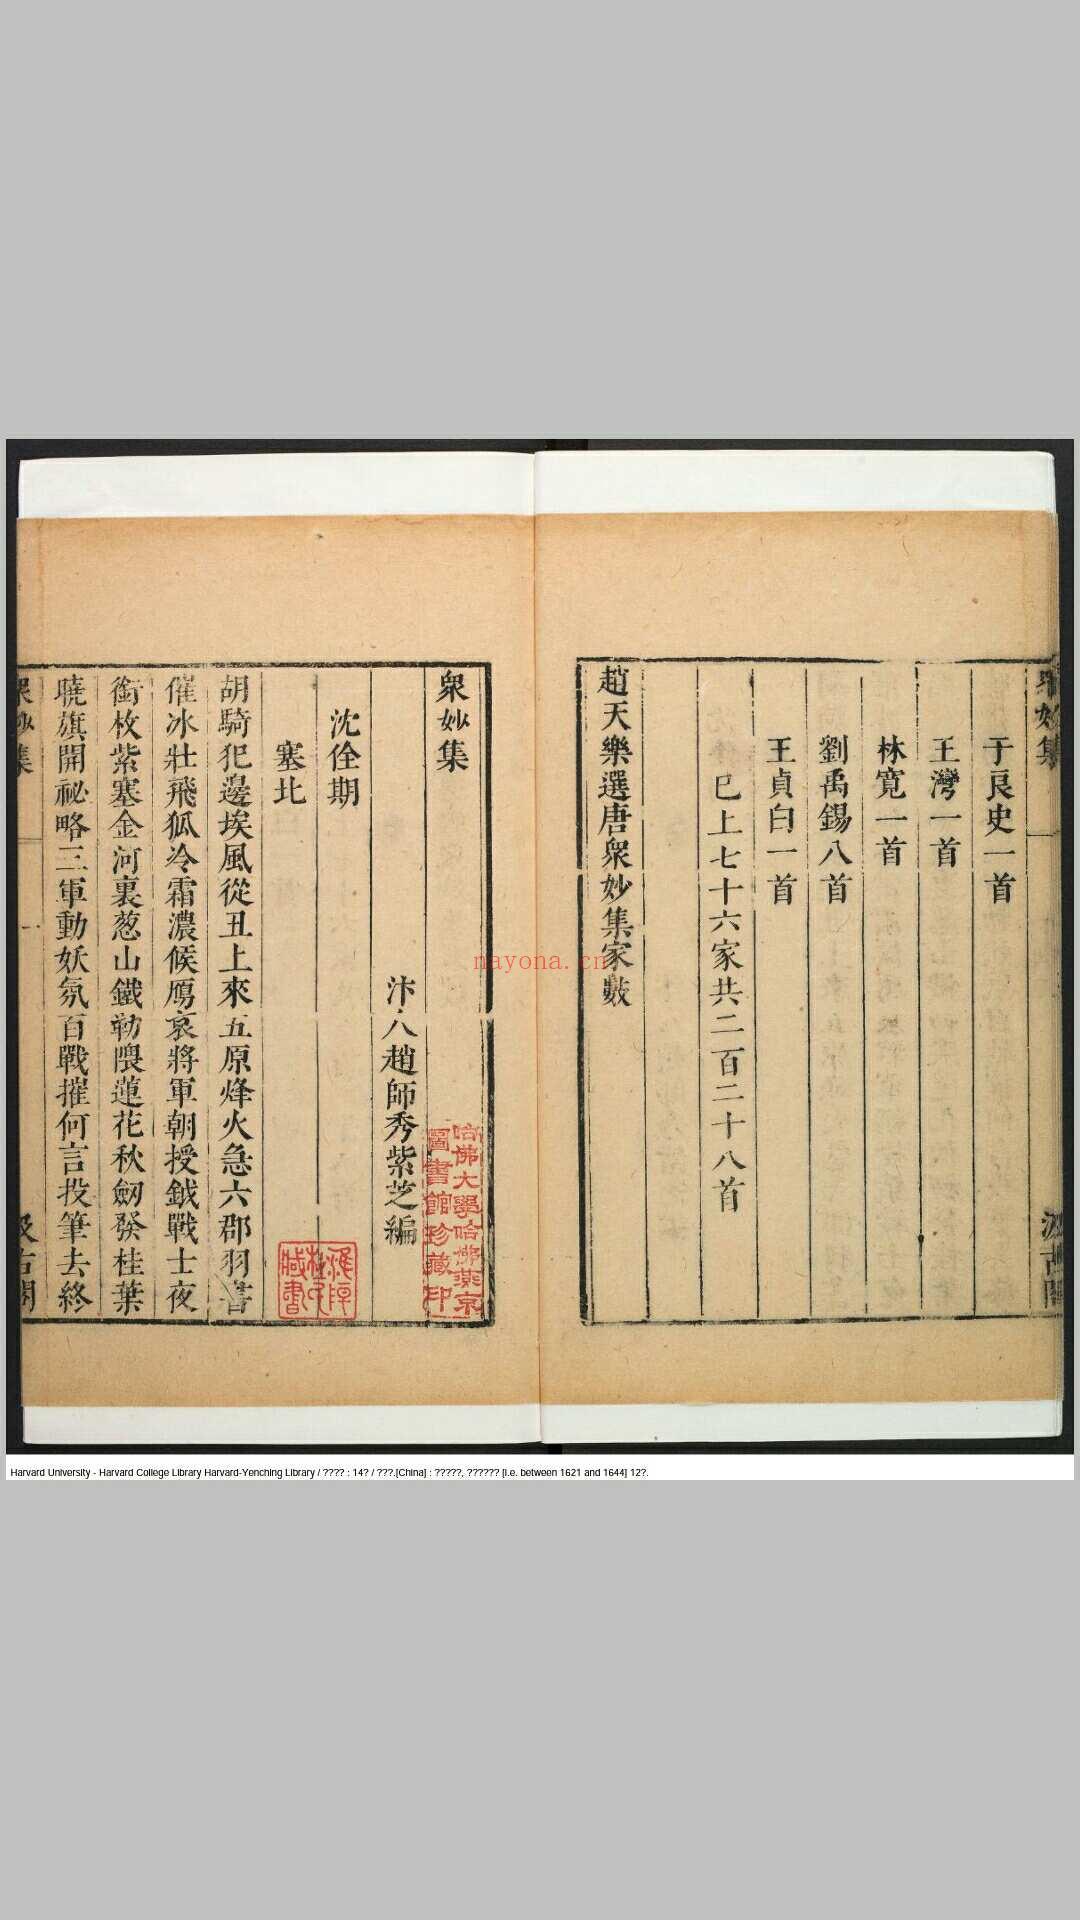 衆妙集
汲古閣
于良史一首
王灣一首
林寛一首
劉禹錫八首
王貞白一首
巳上七十六家共二百二十八首
趙天樂選唐衆妙集家數
衆妙集
汴人趙師秀紫芝編
沈佺期
塞北
胡騎犯邊埃風從丑上來五原烽火急六郡羽書
催冰壯飛狐冷霜濃候鴈哀將軍朝授鉞戰士夜
銜枚紫塞金河裏葱山鐵勒隈蓮花秋劒發桂葉
曉旗開祕略三軍動妖氛百戰摧何言投筆去終
衆妙集
一
汲古閣
哈佛大學哈佛燕京
圖書館珍藏印
nayona.cn
Harvard University - Harvard College Library Harvard-Yenching Library / ???? : 14? / ???.[China] : ?????, ?????? [i.e. between 1621 and 1644] 12?.